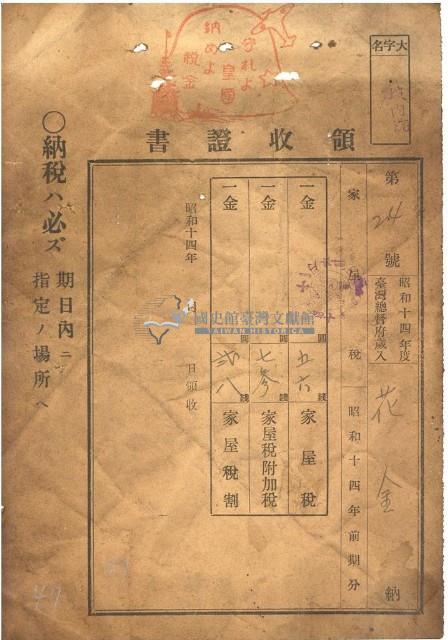 大字名
守れよ
皇軍
納めよ
税金
領收證書
第24號
昭和十四年度
臺灣總督府歲入
花金納
家屋稅 昭和十四年前期分
一金 圓五六錢 家屋稅
一金 圓七參錢 家屋稅附加稅
一金 圓弐八錢 家屋稅割
昭和十四年 月 日領收
〇納稅ハ必ズ期日內ニ
指定ノ場所ヘ
國史館臺灣文獻館
TAIWAN HISTORICA
47